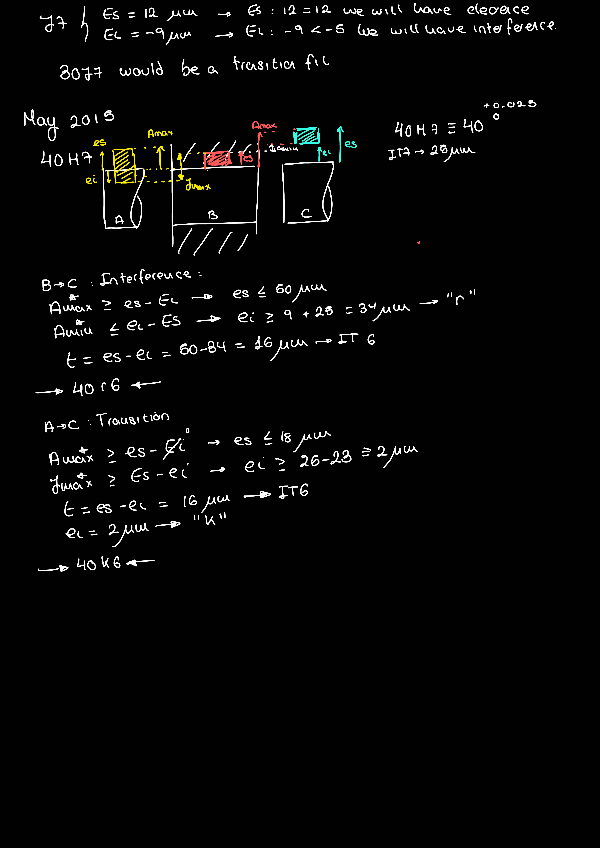 J7 { Es = 12 μm → Es : 12 = 12 we will have clearance
Ei = -9 μm → Ei : -9 < -6 We will have interference.
30J7 would be a transition fit
May 2019
40H7
es
ei
Amax
Jmax
A
B
Amax
es
C
ei
es
40H7 ≡ 40 +0.025 0
IT7 → 25 μm
B→C : Interference :
Amax* ≥ es - Ei → es ≤ 50 μm
Amin* ≤ ei - ES → ei ≥ 9 + 25 = 34 μm → "r"
t = es - ei = 50 - 34 = 16 μm → IT 6
→ 40r6 ←
A→C : Transition
Amax* ≥ es - Ei 0 → es ≤ 18 μm
Jmax* ≥ Es - ei → ei ≥ 25 - 23 = 2 μm
t = es - ei = 16 μm → IT6
ei = 2 μm → "k"
→ 40k6 ←